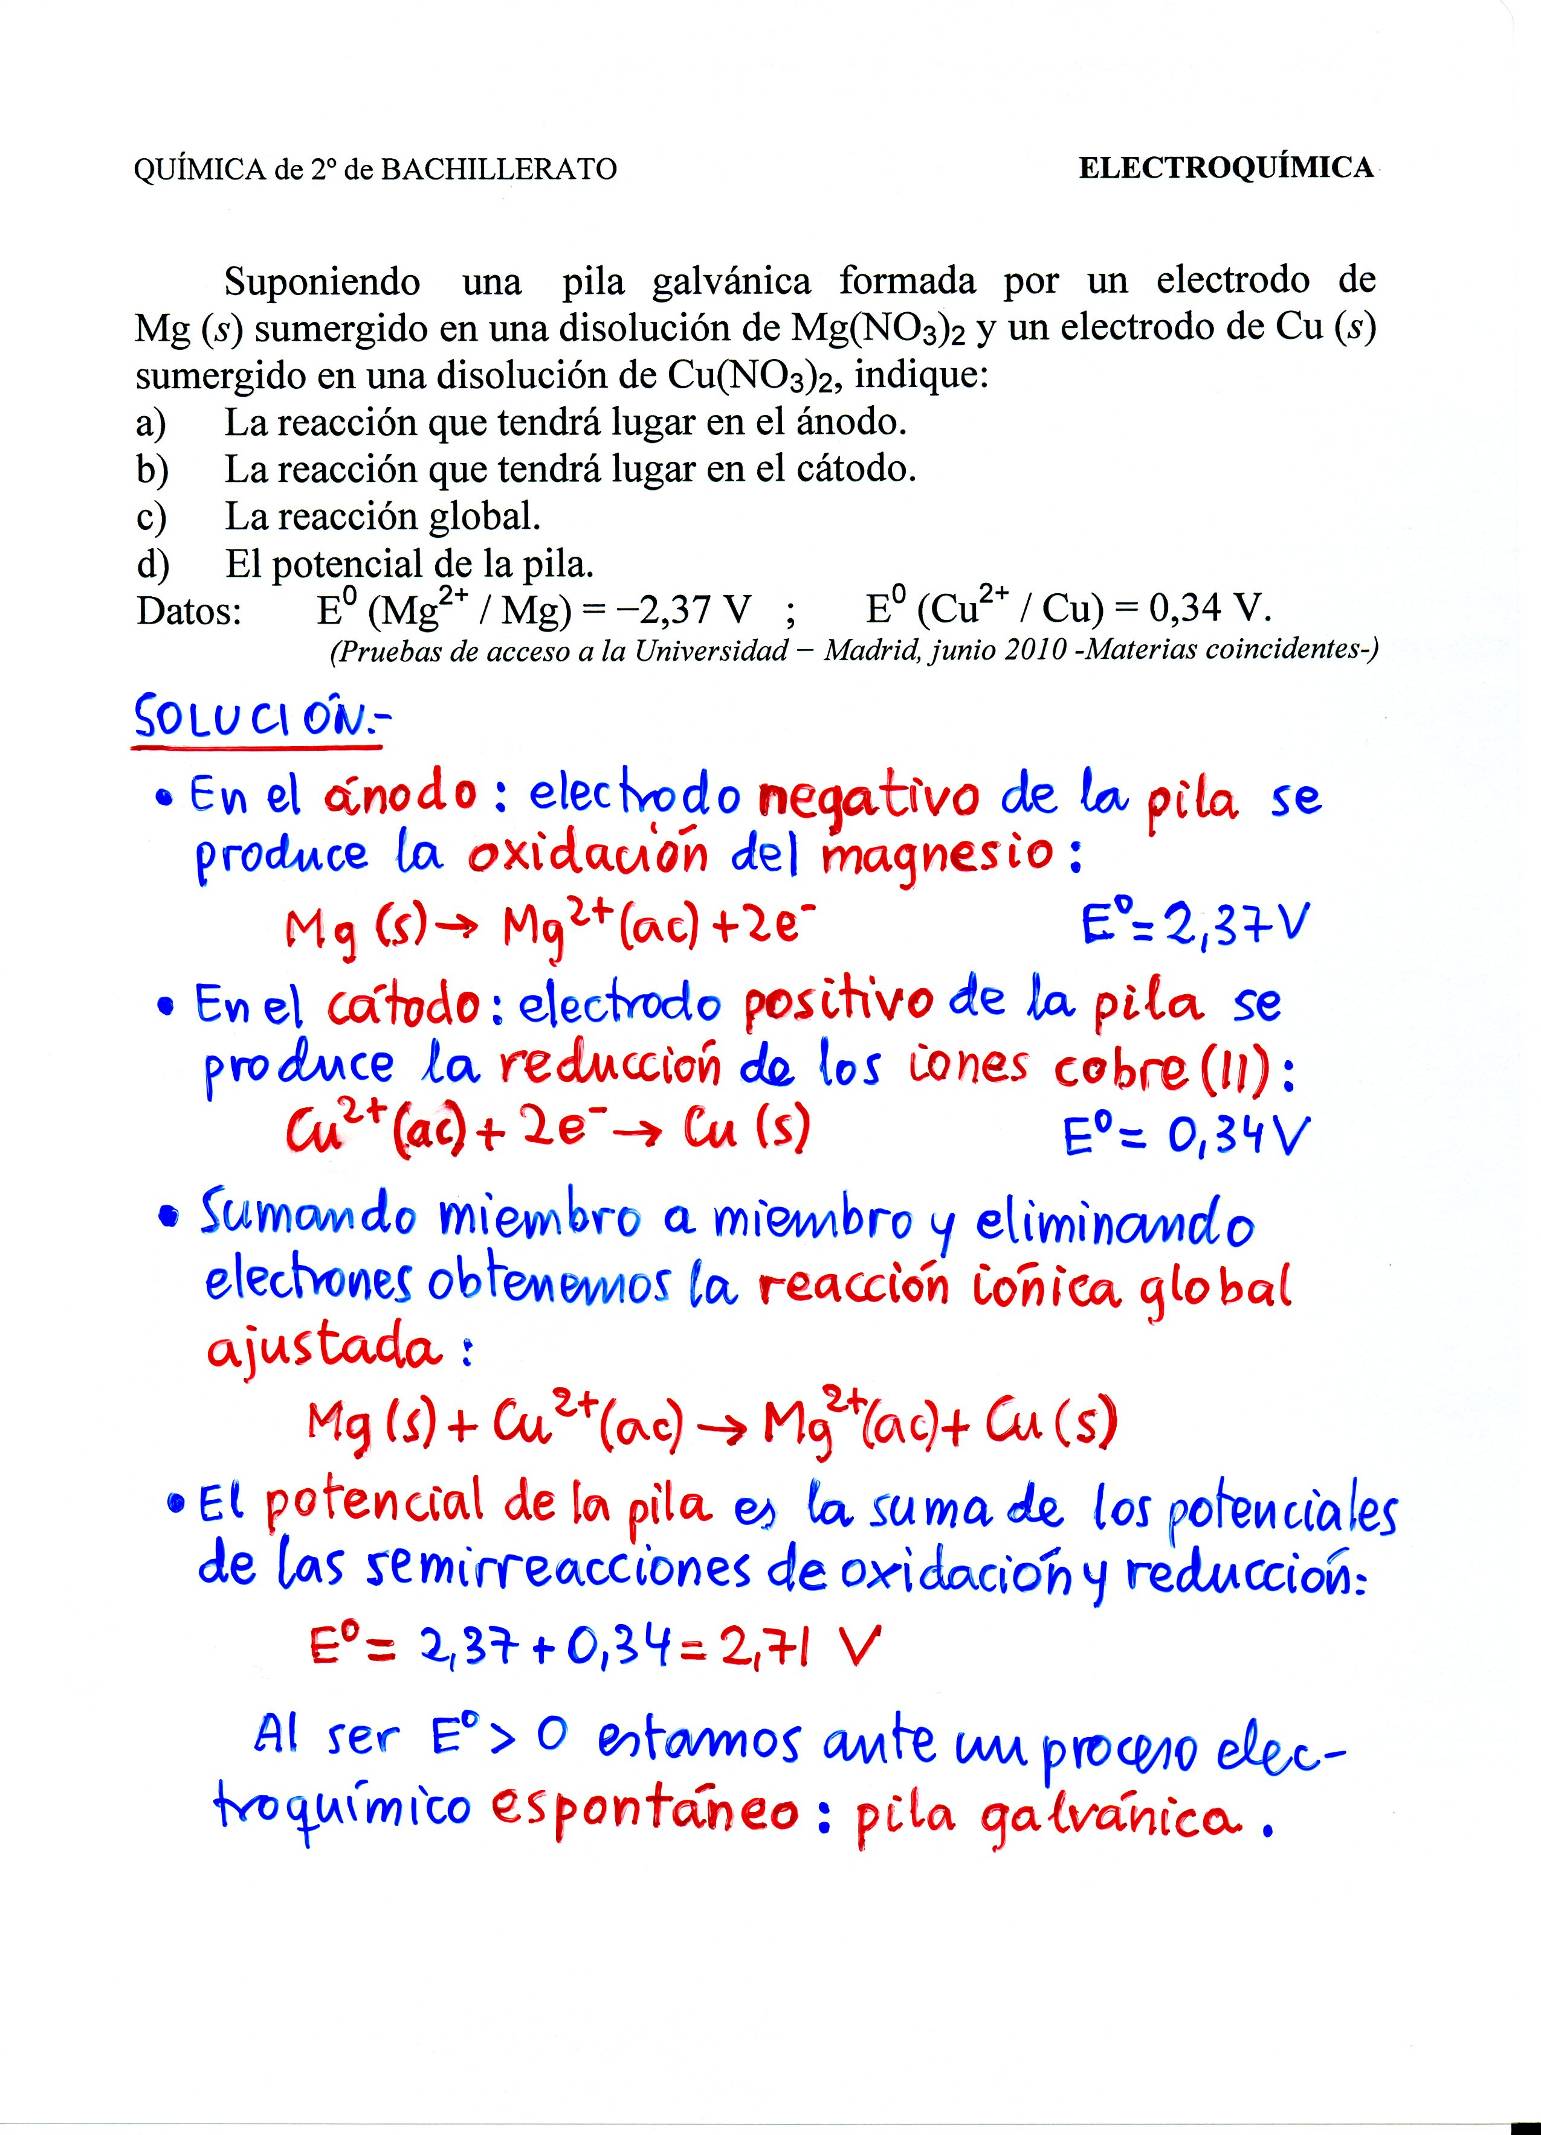 QUÍMICA de 2º de BACHILLERATO ELECTROQUÍMICA
Suponiendo una pila galvánica formada por un electrodo de
Mg (s) sumergido en una disolución de Mg(NO₃)₂ y un electrodo de Cu (s)
sumergido en una disolución de Cu(NO₃)₂, indique:
a) La reacción que tendrá lugar en el ánodo.
b) La reacción que tendrá lugar en el cátodo.
c) La reacción global.
d) El potencial de la pila.
Datos: E⁰ (Mg²⁺ / Mg) = −2,37 V ; E⁰ (Cu²⁺ / Cu) = 0,34 V.
(Pruebas de acceso a la Universidad − Madrid, junio 2010 -Materias coincidentes-)
SOLUCIÓN.-
• En el ánodo: electrodo negativo de la pila se
produce la oxidación del magnesio:
Mg (s) → Mg²⁺ (ac) + 2e⁻ E⁰ = 2,37 V
• En el cátodo: electrodo positivo de la pila se
produce la reducción de los iones cobre (II):
Cu²⁺ (ac) + 2e⁻ → Cu (s) E⁰ = 0,34 V
• Sumando miembro a miembro y eliminando
electrones obtenemos la reacción iónica global
ajustada:
Mg (s) + Cu²⁺ (ac) → Mg²⁺ (ac) + Cu (s)
• El potencial de la pila es la suma de los potenciales
de las semirreacciones de oxidación y reducción:
E⁰ = 2,37 + 0,34 = 2,71 V
Al ser E⁰ > 0 estamos ante un proceso elec-
troquímico espontáneo: pila galvánica.